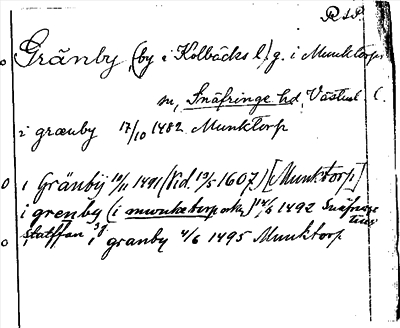 R s P.
Gränby, (by i Kolbäcks l.) g. i Munktorps
sn, Snäfringe hd, Västml l.
i grænby 17/10 1482 Munktorp
i Gränbÿ 10/11 1491 (vid. 13/5 1607) [Munktorp]
i grenby (i munketorp sokn) 14/6 1492 Snäfringe
staffan i granby 4/6 1495 Munktorp